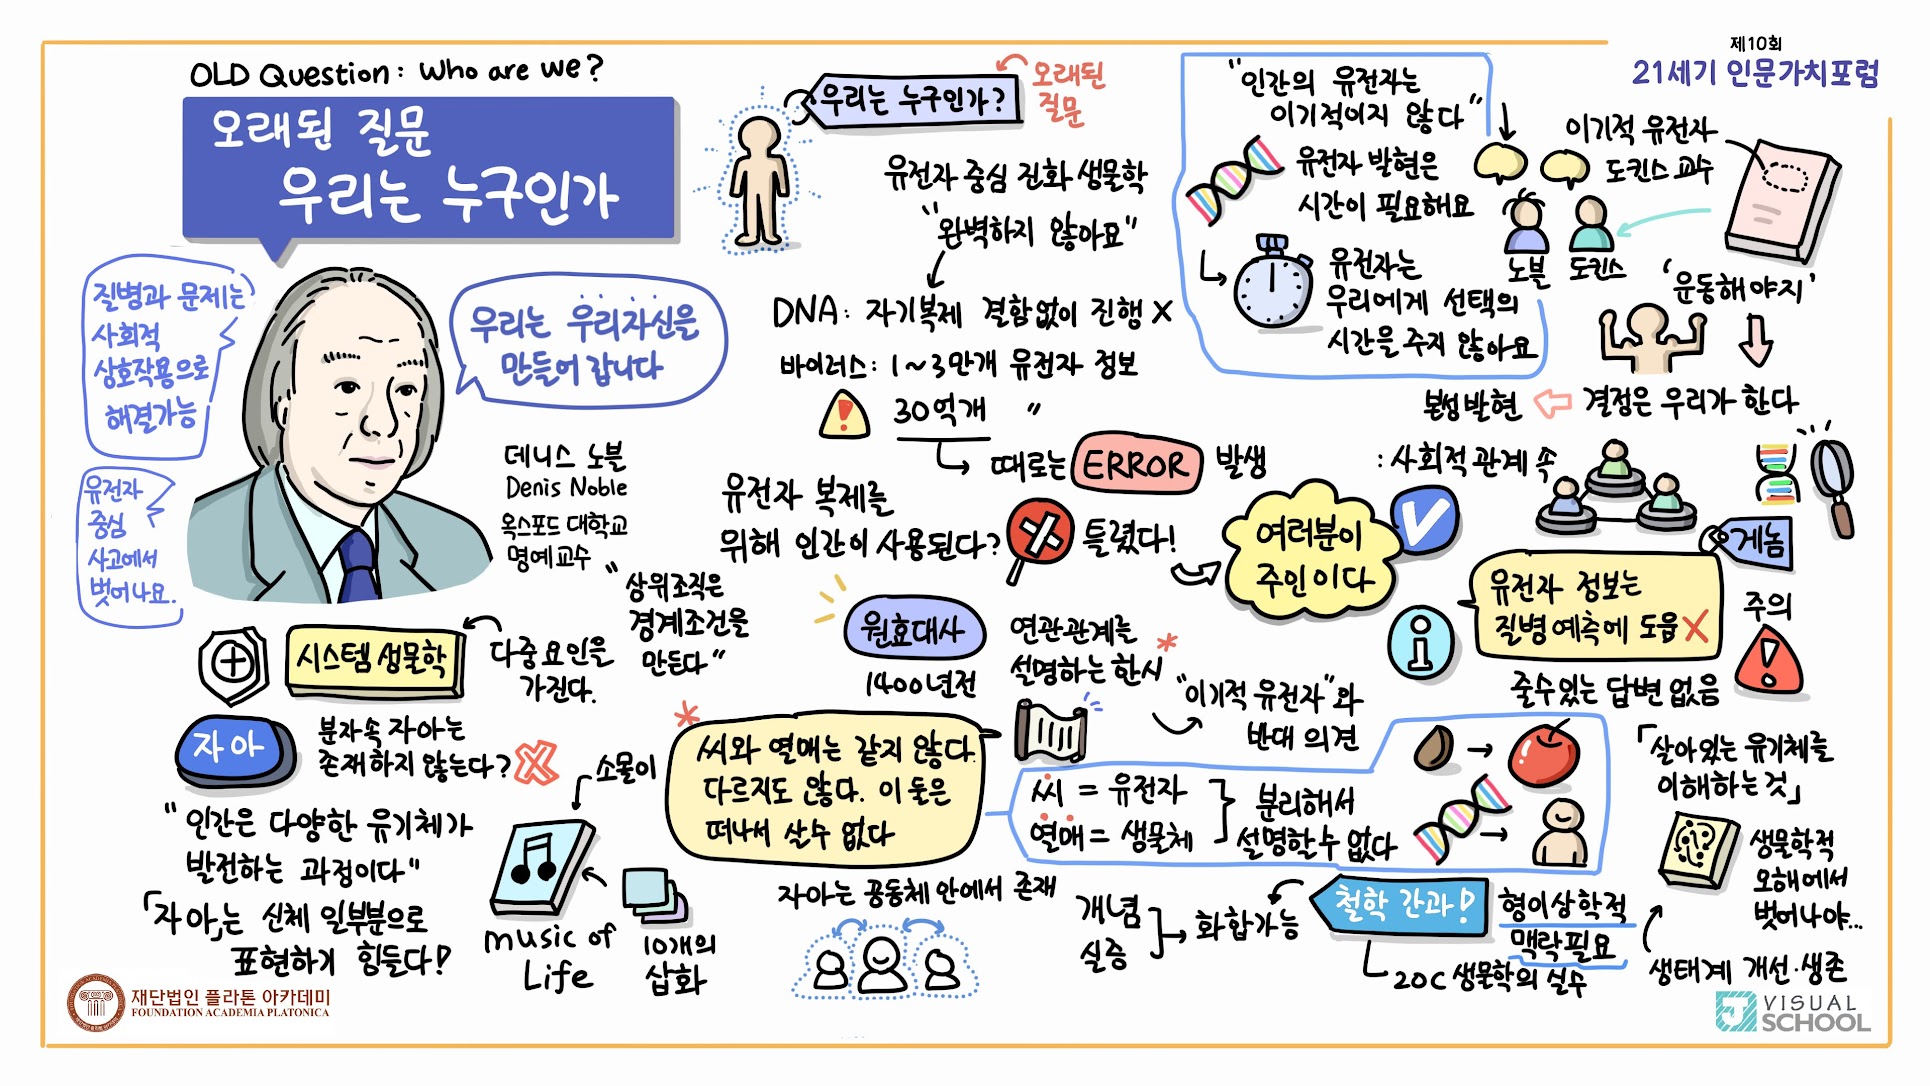 OLD Question: Who are we?
오래된 질문
우리는 누구인가
제10회
21세기 인문가치포럼
질병과 문제는
사회적
상호작용으로
해결가능
우리는 우리자신을
만들어 갑니다
유전자
중심
사고에서
벗어나요.
데니스 노블
Denis Noble
옥스포드 대학교
명예교수
우리는 누구인가?
오래된
질문
유전자 중심 진화 생물학
"완벽하지 않아요"
DNA: 자기복제 결함없이 진행 X
바이러스: 1~3만개 유전자 정보
30억개 〃
때로는 ERROR 발생
"인간의 유전자는
이기적이지 않다"
유전자 발현은
시간이 필요해요
유전자는
우리에게 선택의
시간을 주지 않아요
이기적 유전자
도킨스 교수
노블
도킨스
'운동해야지'
결정은 우리가 한다
본성발현
: 사회적 관계 속
유전자 복제를
위해 인간이 사용된다?
틀렸다!
여러분이
주인이다
게놈
유전자 정보는
질병 예측에 도움 X
주의
줄수있는 답변 없음
시스템 생물학
다중 요인을
가진다.
"상위조직은
경계조건을
만든다"
자아
분자속 자아는
존재하지 않는다?
"인간은 다양한 유기체가
발전하는 과정이다"
「자아」는 신체 일부분으로
표현하기 힘들다!
소물이
music of
Life
10개의
삽화
원효대사
1400년전
연관관계를
설명하는 한시*
"이기적 유전자"와
반대 의견
*
씨와 열매는 같지 않다.
다르지도 않다. 이 둘은
떠나서 살수 없다
씨 = 유전자
열매 = 생물체
분리해서
설명할수 없다
자아는 공동체 안에서 존재
개념
실증
화합가능
철학 간과!
형이상학적
맥락필요
20C 생물학의 실수
「살아있는 유기체를
이해하는 것」
생물학적
오해에서
벗어나야...
생태계 개선·생존
재단법인 플라톤 아카데미
FOUNDATION ACADEMIA PLATONICA
VISUAL
SCHOOL